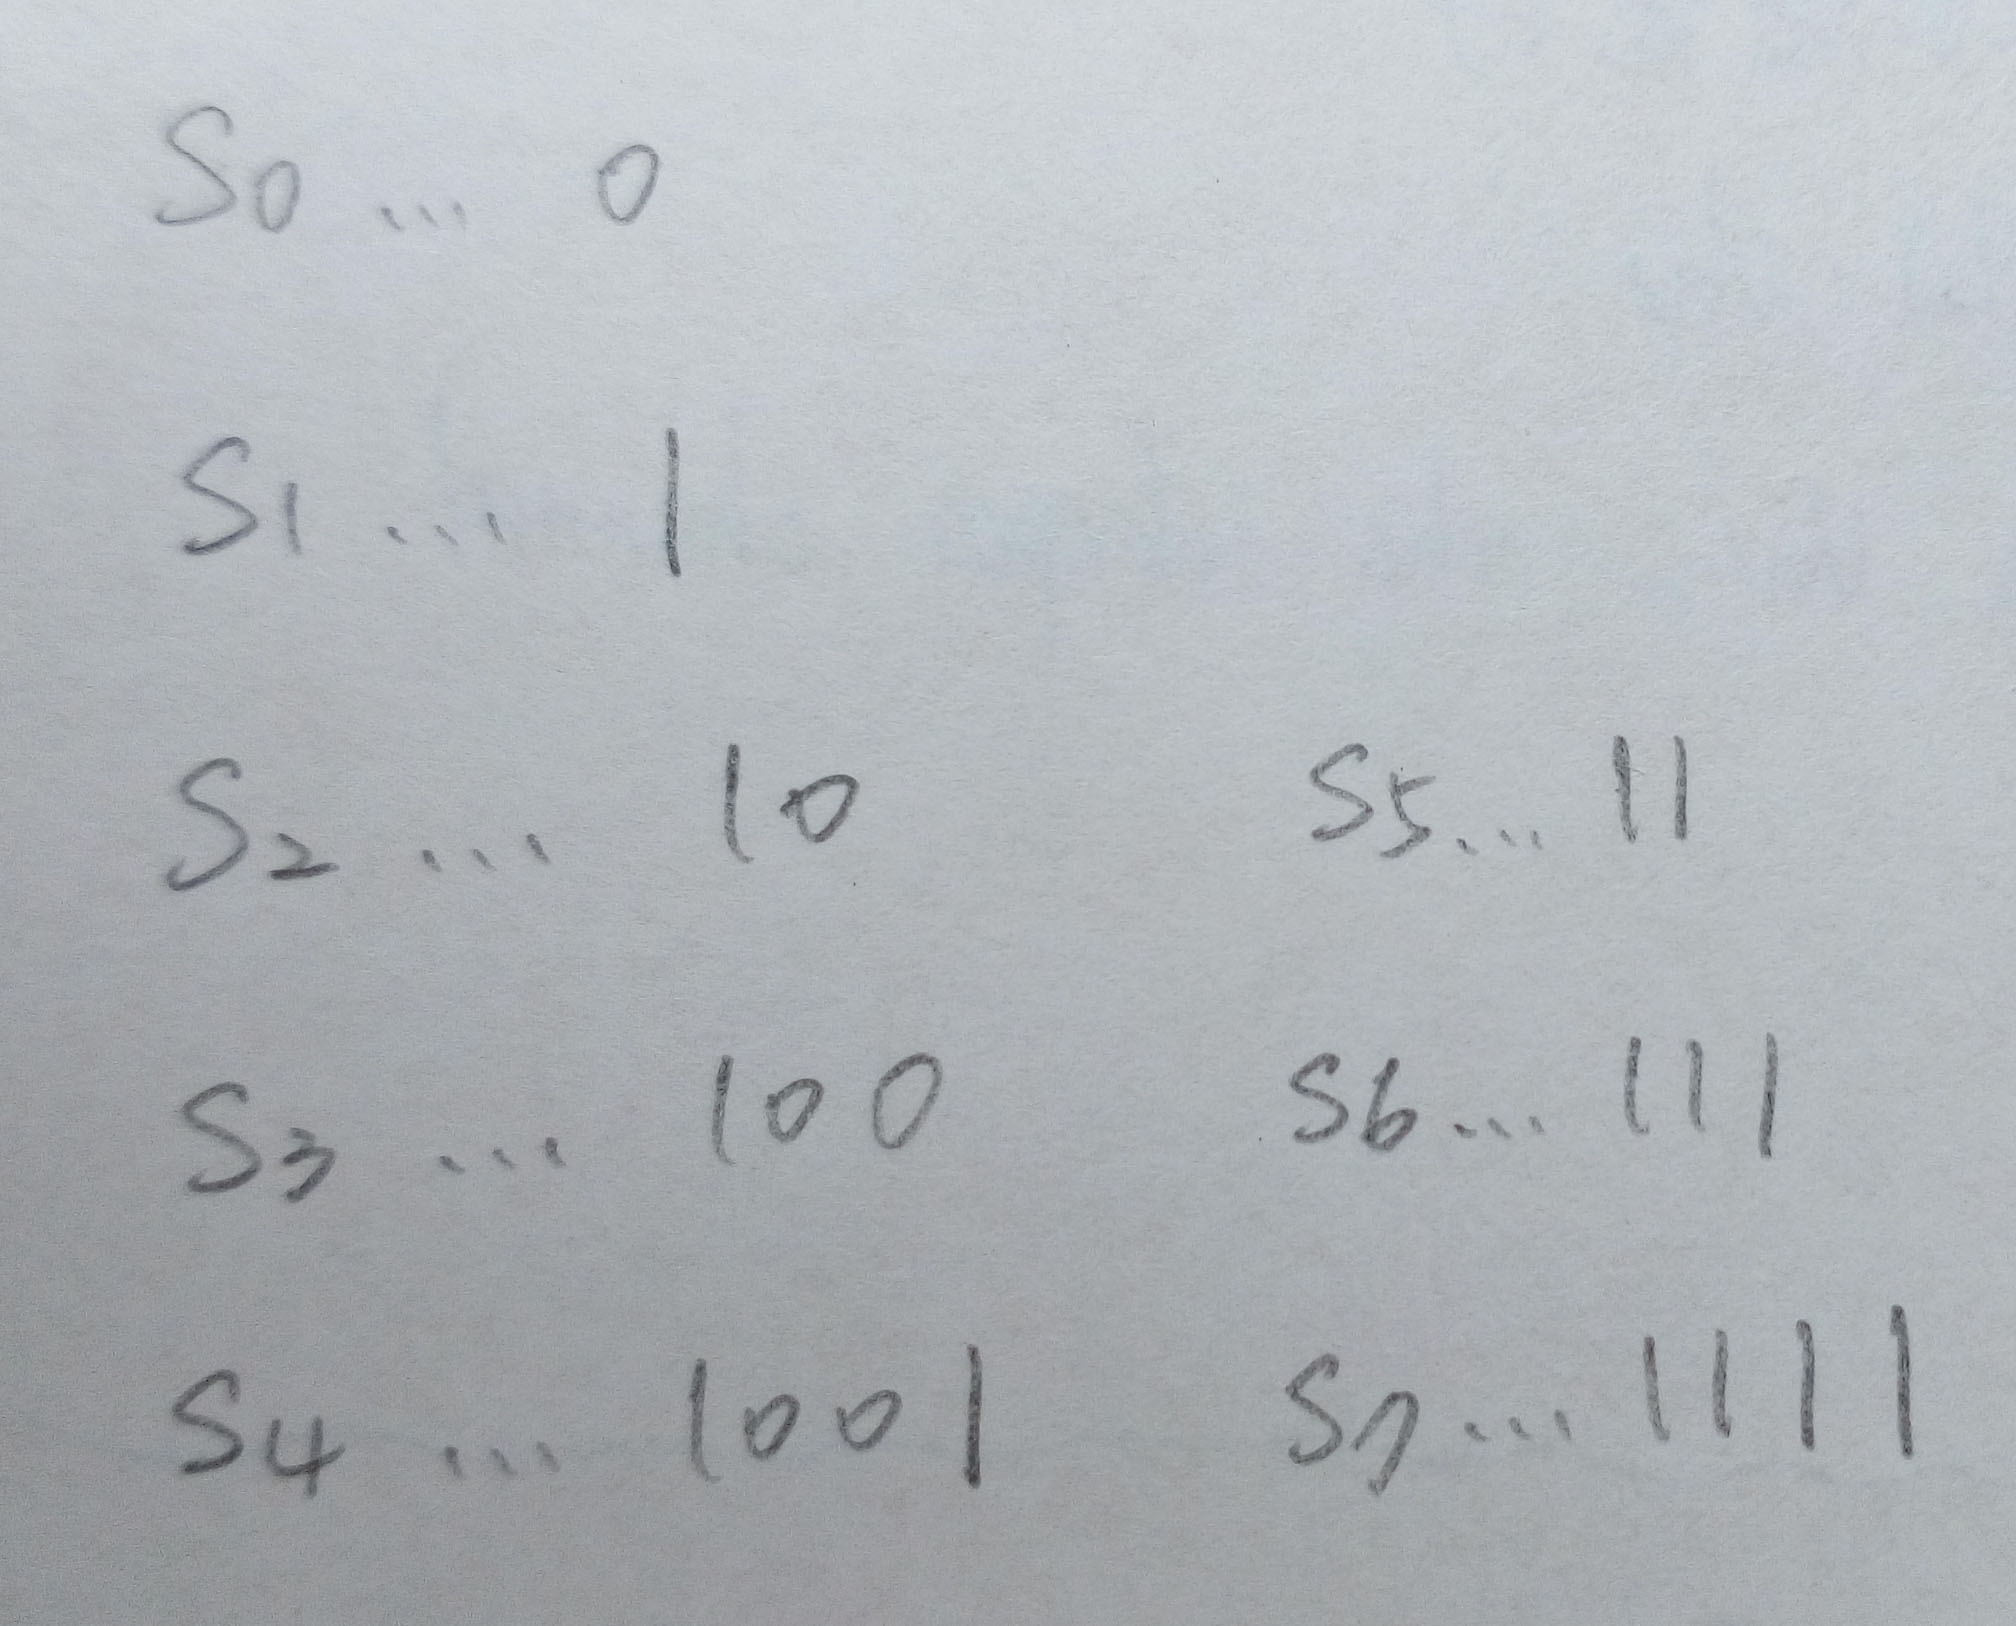 S0 ... 0
S1 ... 1
S2 ... 10
S3 ... 100
S4 ... 1001
S5 ... 11
S6 ... 111
S7 ... 1111